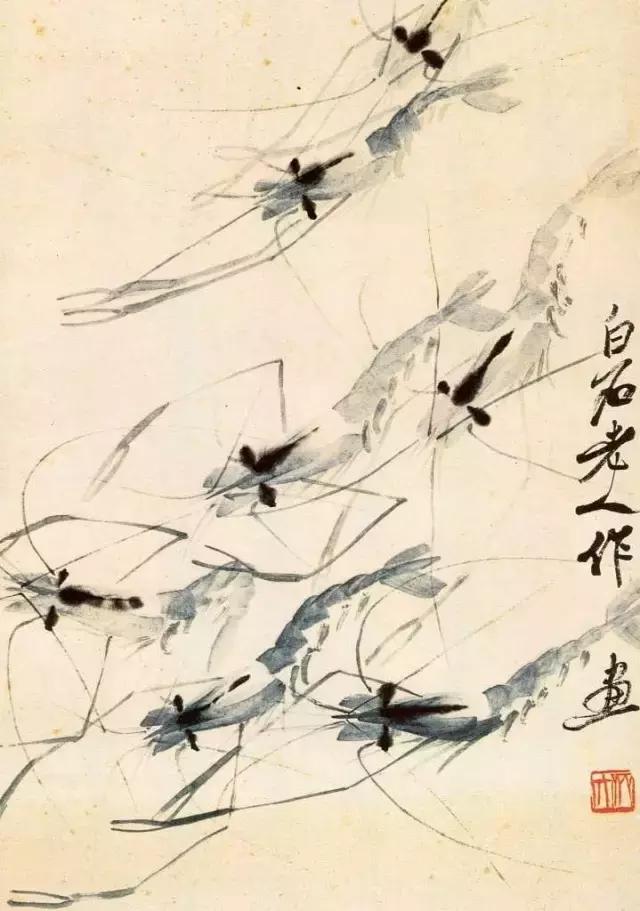 白石老人作画